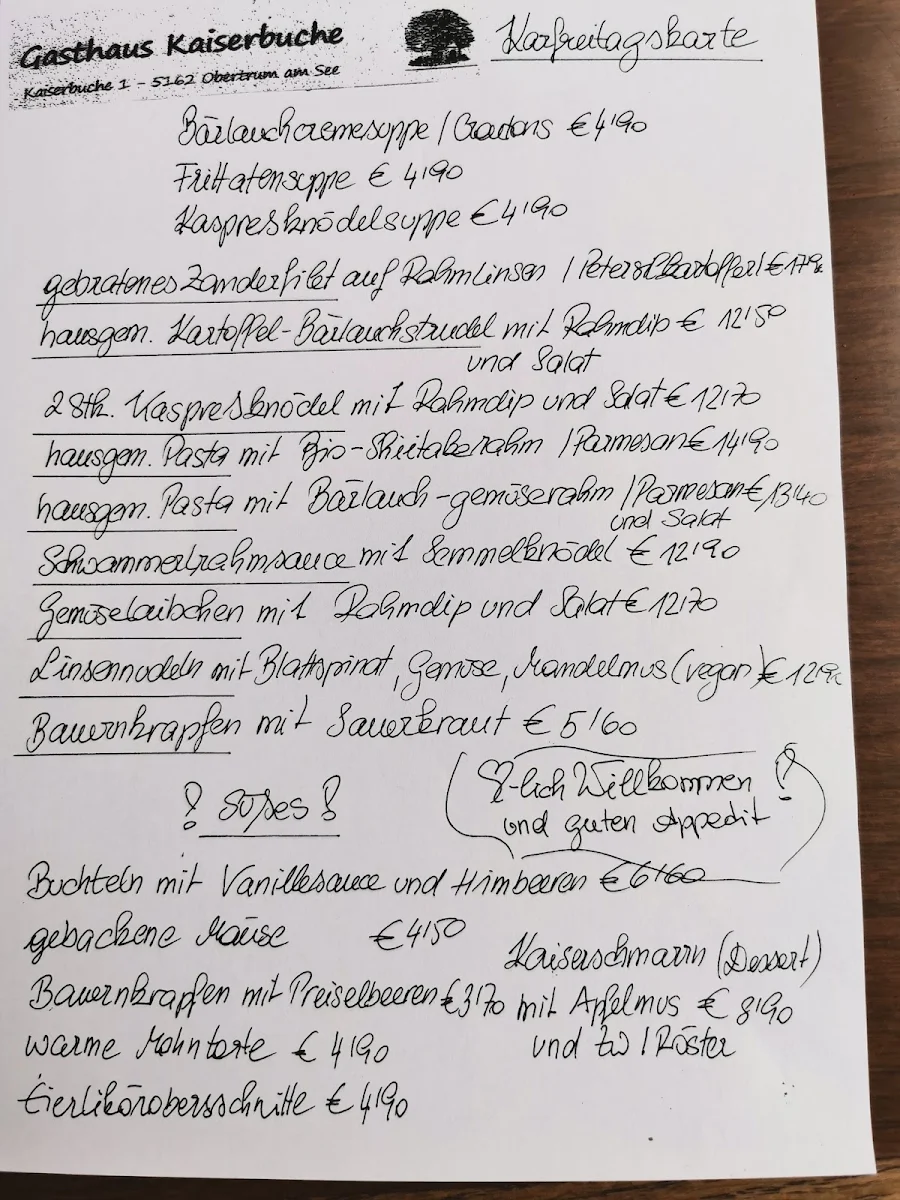 Gasthaus Kaiserbuche
Kaiserbuche 1 - 5162 Obertrum am See
Karfreitagskarte
Bärlauchcremesuppe / Croutons € 4'90
Frittatensuppe € 4'90
Kaspresknödelsuppe € 4'90
gebratenes Zanderfilet auf Rahmlinsen / Petersilkartofferl €
hausgem. Kartoffel-Bärlauchstrudel mit Rahmdip € 12'50
und Salat
2 Stk. Kaspresknödel mit Rahmdip und Salat € 12'70
hausgem. Pasta mit Bio-Shiitakerahm / Parmesan € 14'90
hausgem. Pasta mit Bärlauch-gemüserahm / Parmesan € 13'40
und Salat
Schwammerlrahmsauce mit Semmelknödel € 12'90
Gemüselaibchen mit Rahmdip und Salat € 12'70
Linsennudeln mit Blattspinat, Gemüse, Mandelmus (vegan) €
Bauernkrapfen mit Sauerkraut € 5'60
! Süßes !
♡-lich Willkommen !
und guten Appedit
Buchteln mit Vanillesauce und Himbeeren € 6'60
gebackene Mäuse € 4'50
Bauernkrapfen mit Preiselbeeren € 3'70
warme Mohntorte € 4'90
Eierlikörobersschnitte € 4'90
Kaiserschmarrn (Dessert)
mit Apfelmus € 8'90
und zw / Röster